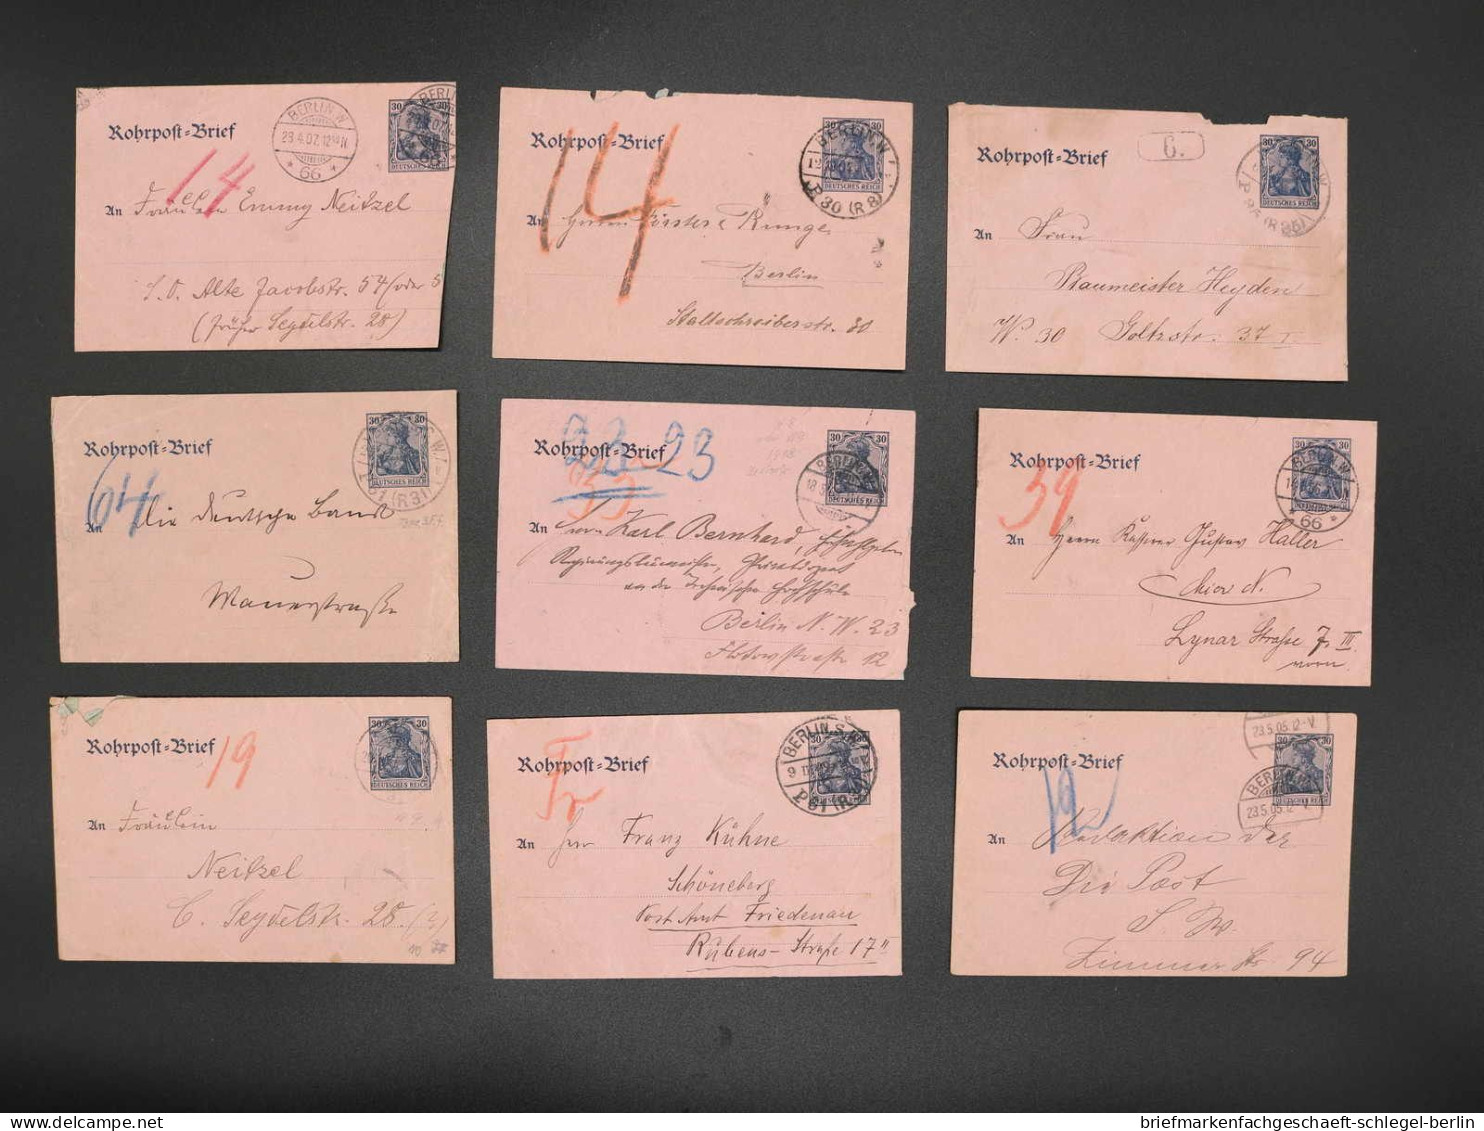 BERLIN.W.
66
Rohrpost-Brief
30 30
DEUTSCHES REICH
14
An Fräulein Emmy Neitzel
S.O. Alte Jacobstr. 54/oder 5
(früher Seydelstr. 28)
Rohrpost-Brief
BERLIN.W.
30 30
DEUTSCHES REICH
P30 (R8)
14
An Herren Förster & Runge
Berlin
Stallschreiberstr. 30
Rohrpost-Brief
6.
30 30
DEUTSCHES REICH
An Frau
Baumeister Heyden
W. 30 Goltzstr. 37 I.
Rohrpost-Brief
30 30
DEUTSCHES REICH
(R31)
64
An Die Deutsche Bank
Mauerstraße
Rohrpost-Brief
23 23
30 30
DEUTSCHES REICH
An Herrn Karl Bernhard,
Regierungsbaumeister, Privatdozent
an der Technischen Hochschule
Berlin N.W. 23
Flotowstrasse 12
Rohrpost-Brief
BERLIN.W.
30 30
66
39
An Herrn Kastner Gustav Haller
hier N.
Lynar Straße 7, III
vorn.
Rohrpost-Brief
30 30
DEUTSCHES REICH
19
An Fräulein
Neitzel
C. Seydelstr. 28
Rohrpost-Brief
BERLIN.S.W.
Fr
An Herr Franz Kühne
Schöneberg
Post Amt Friedenau
Rubens-Straße 17 II
Rohrpost-Brief
23.5.05.12-V.
BERLIN
30
DEUTSCHES REICH
23.5.05.12-V
19
An Redaktion der
Die Post
S.W.
Zimmer Str. 94
briefmarkenfachgeschaeft-schlegel-berlin